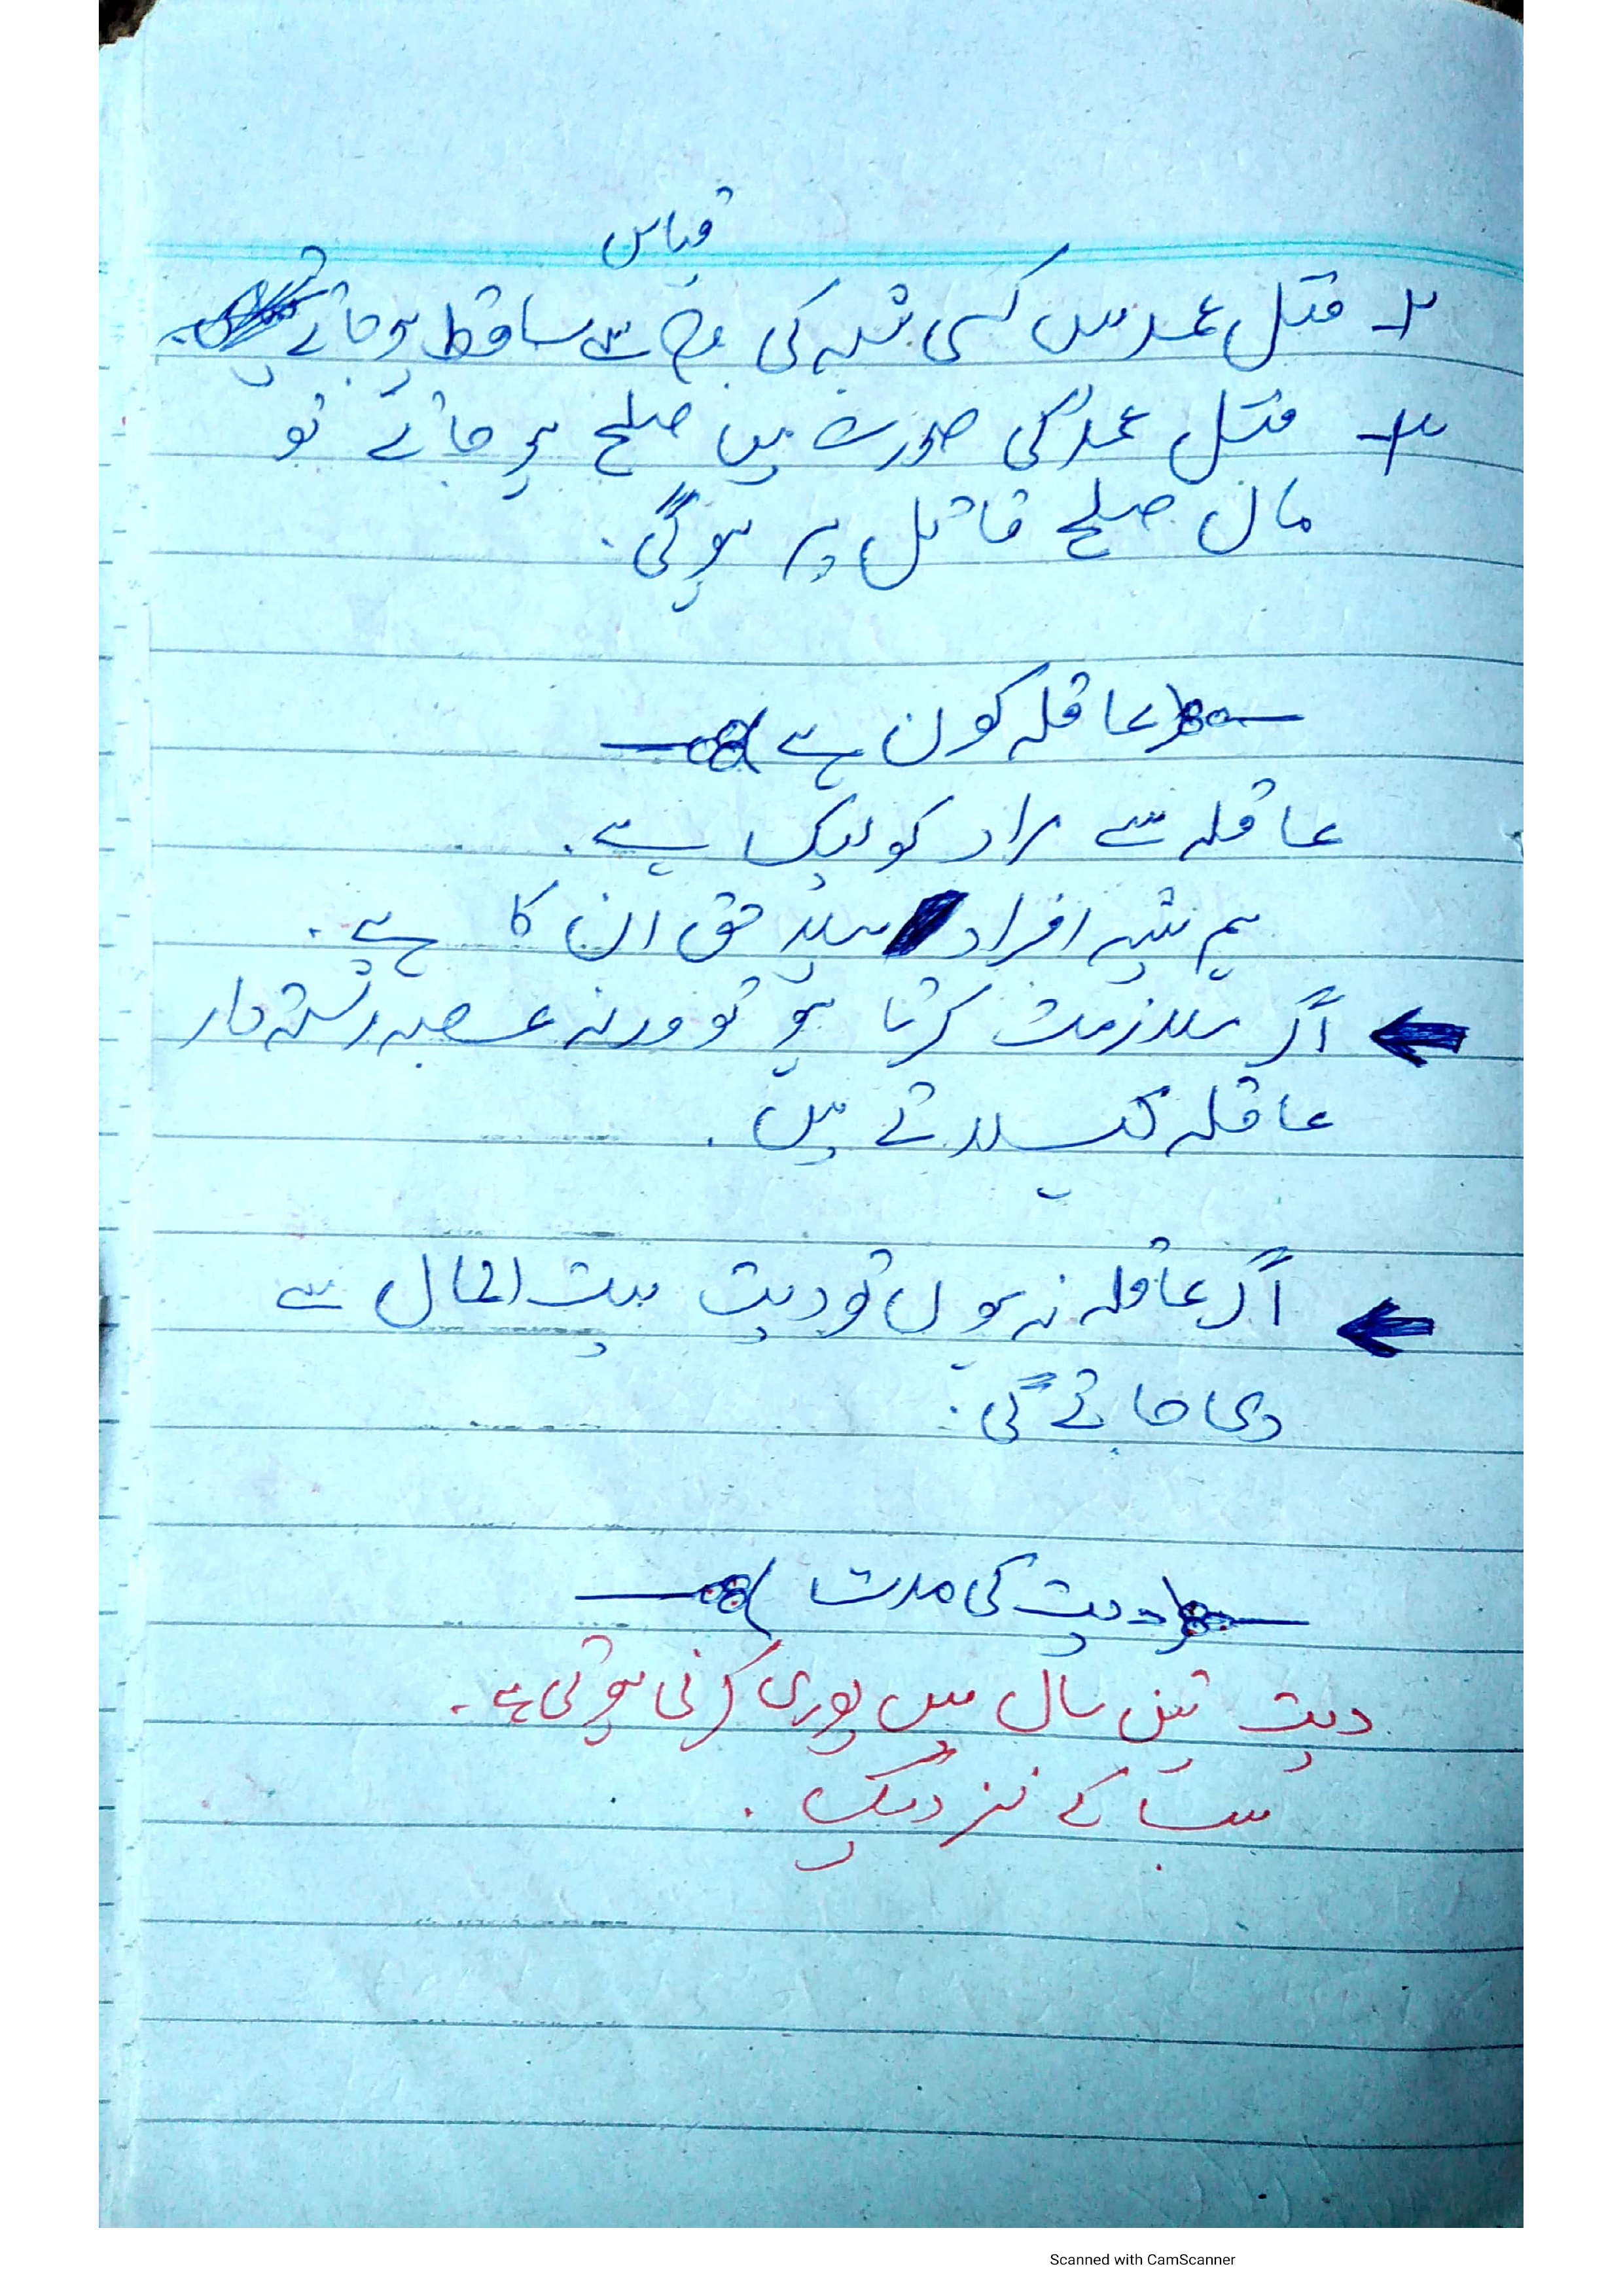 قیاس
۲۔ قتل عمد میں کسی شبہ کی وجہ سے ساقط ہو جائے
۳۔ قتل عمد کی صورت میں صلح ہو جائے تو
مال صلح قاتل پر ہوگی۔
عاقلہ کون ہے
عاقلہ سے مراد کولیگ ہے۔
ہم پیشہ افراد پہلا حق ان کا ہے۔
اگر ملازمت کرتا ہو تو ورنہ عصبہ رشتہ دار
عاقلہ کہلاتے ہیں۔
اگر عاقلہ نہ ہوں تو دیت بیت المال سے
دی جائے گی۔
دیت کی مدت
دیت تین سال میں پوری کرنی ہوتی ہے۔
سب کے نزدیک۔
Scanned with CamScanner